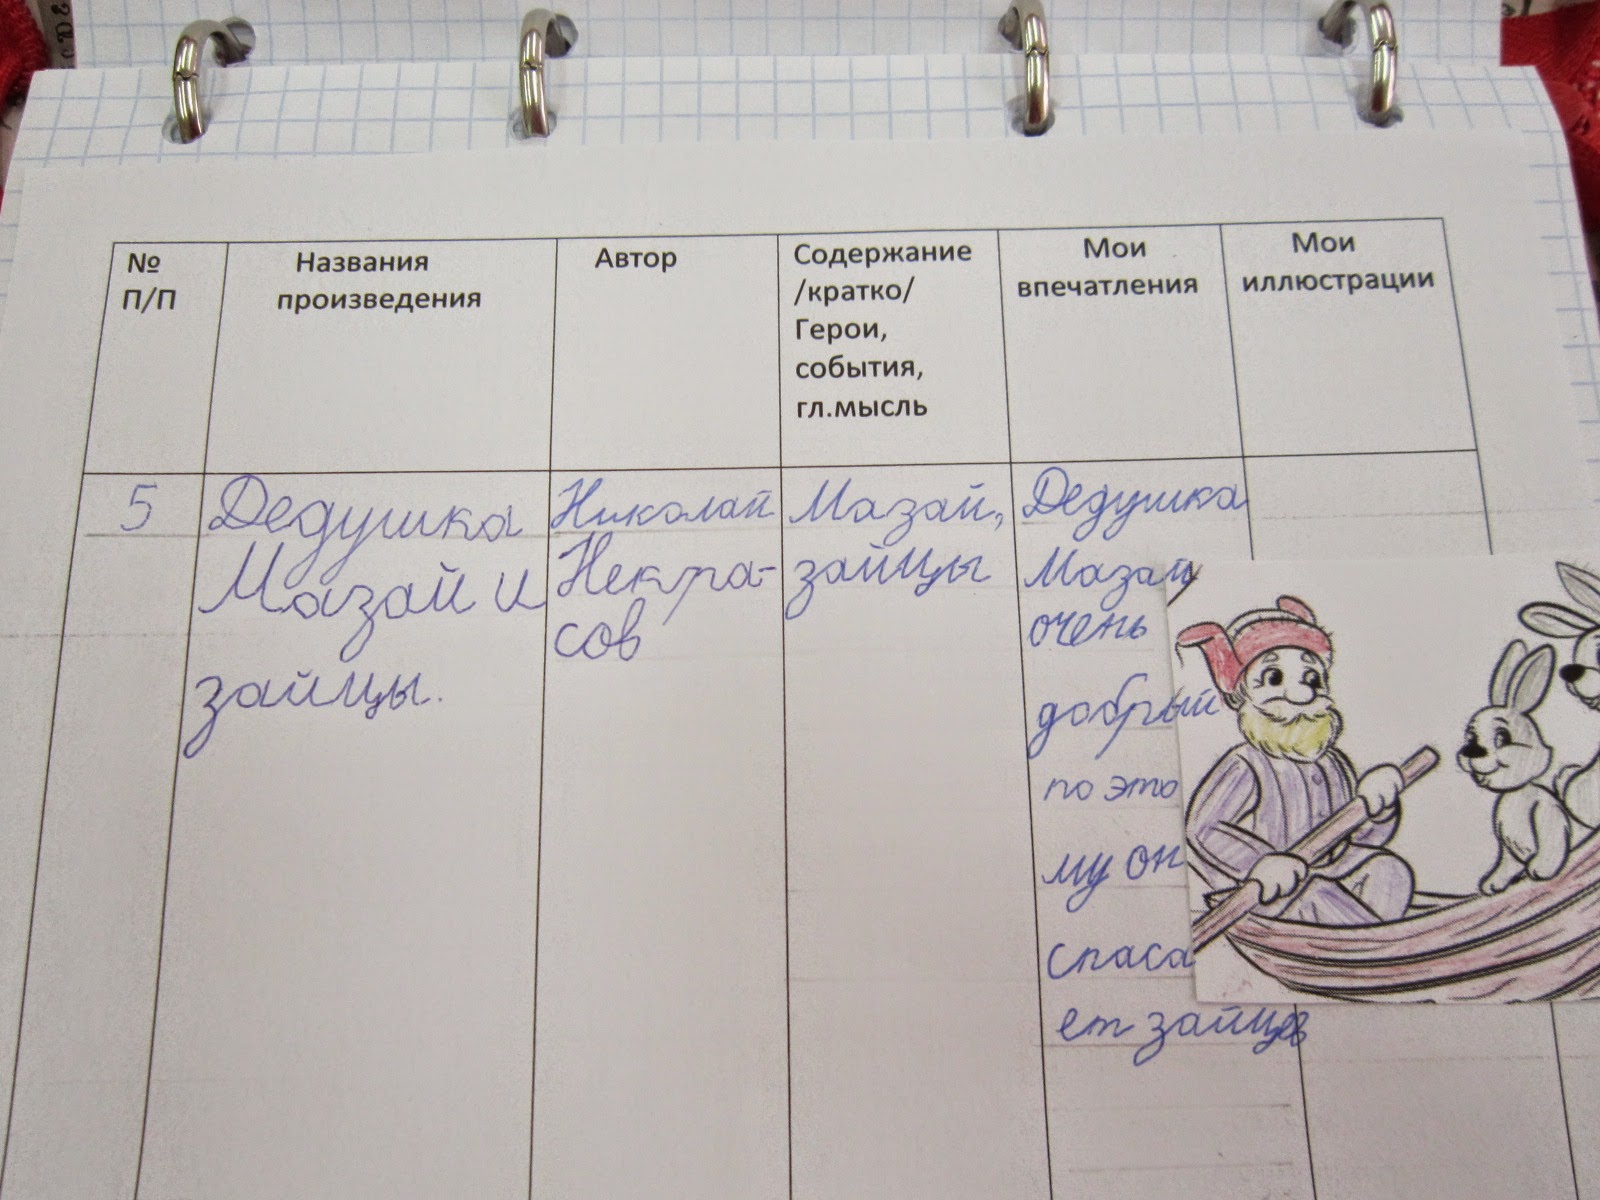 №
П/П
Названия
произведения
Автор
Содержание
/кратко/
Герои,
события,
гл.мысль
Мои
впечатления
Мои
иллюстрации
5
Дедушка
Мазай и
зайцы.
Николай
Некра-
сов
Мазай,
зайцы
Дедушка
Мазай
очень
добрый
по это
му он
спаса
ет зайцев